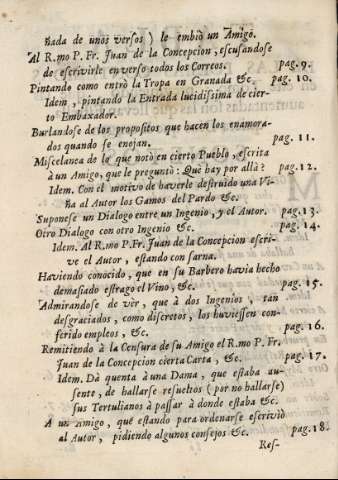 ñada de unos versos) le embiò un Amigo.
Al R.mo P. Fr. Juan de la Concepcion, escusandose
de escrivirle en verso todos los Correos. pag. 9.
Pintando como entrò la Tropa en Granada &c. pag. 10.
Idem, pintando la Entrada lucidissima de cier-
to Embaxador.
Burlandose de los propositos que hacen los enamora-
dos quando se enojan. pag. 11.
Miscelanea de lo que notò en cierto Pueblo, escrita
à un Amigo, que le preguntò: Què hay por allà? pag. 12.
Idem. Con el motivo de haverle destruido una Vi-
ña al Autor los Gamos del Pardo &c.
Suponese un Dialogo entre un Ingenio, y el Autor. pag. 13.
Otro Dialogo con otro Ingenio &c. pag. 14.
Idem. Al R.mo P. Fr. Juan de la Concepcion escri-
ve el Autor, estando con sarna.
Haviendo conocido, que en su Barbero havia hecho
demasiado estrago el Vino, &c. pag. 15.
Admirandose de vèr, que à dos Ingenios, tan
desgraciados, como discretos, los huviessen con-
ferido empleos, &c. pag. 16.
Remitiendo à la Censura de su Amigo el R.mo P. Fr.
Juan de la Concepcion cierta Carta, &c. pag. 17.
Idem. Dà quenta à una Dama, que estaba au-
sente, de hallarse resueltos (por no hallarse)
sus Tertulianos à passar à donde estaba &c.
A un Amigo, que estando para ordenarse escriviò
al Autor, pidiendo algunos consejos &c. pag. 18.
Res-